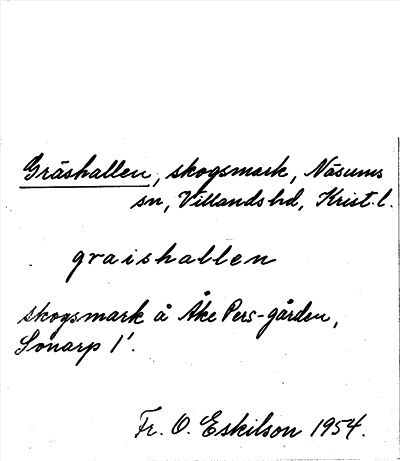 Gräshallen, skogsmark, Näsums
sn, Villands hd, Krist. l.
graishallen
skogsmark å Åke Pers-gården,
Sonarp 1¹.
Fr. O. Eskilson 1954.